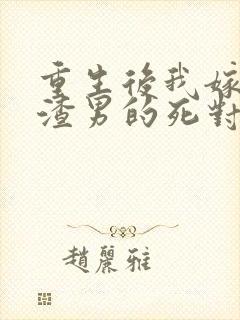 重生後我嫁
渣男的死對
趙麗雅